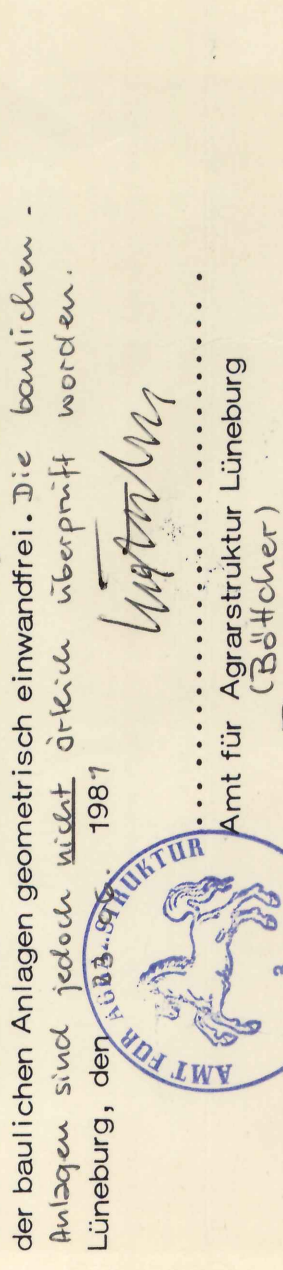 der baulichen Anlagen geometrisch einwandfrei. Die baulichen -
Anlagen sind jedoch nicht örtlich überprüft worden.
Lüneburg, den 1981
Amt für Agrarstruktur Lüneburg
(Böttcher)
AMT FÜR AGRARSTRUKTUR